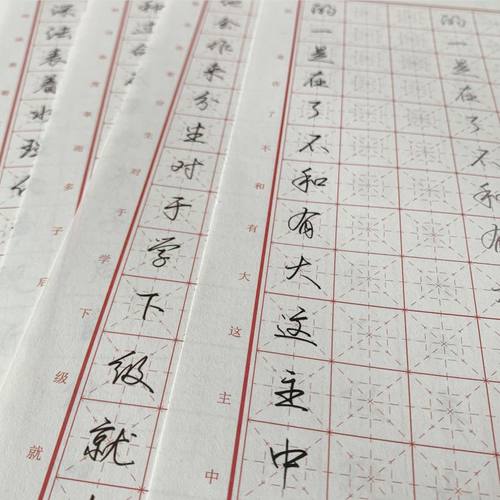 的一是在了不和有
的一是在了不和有大这主中
在了不和有大这主中
会作来分生对于学下级就
分生对于学下级就
种过
多子后
法表着水理